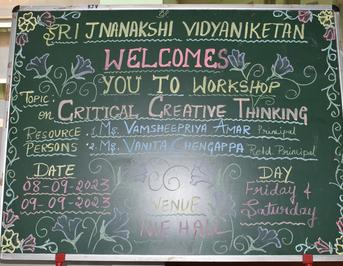 ಶ್ರೀ SRI JNANAKSHI VIDYANIKETAN
WELCOMES
YOU TO WORKSHOP
Topic:
on CRITICAL CREATIVE THINKING
RESOURCE : 1. Ms. VAMSHEEPRIYA AMAR Principal
PERSONS 2. Ms. VANITA CHENGAPPA Retd. Principal
DATE
08-09-2023
09-09-2023
VENUE
HALL
DAY
Friday &
Saturday